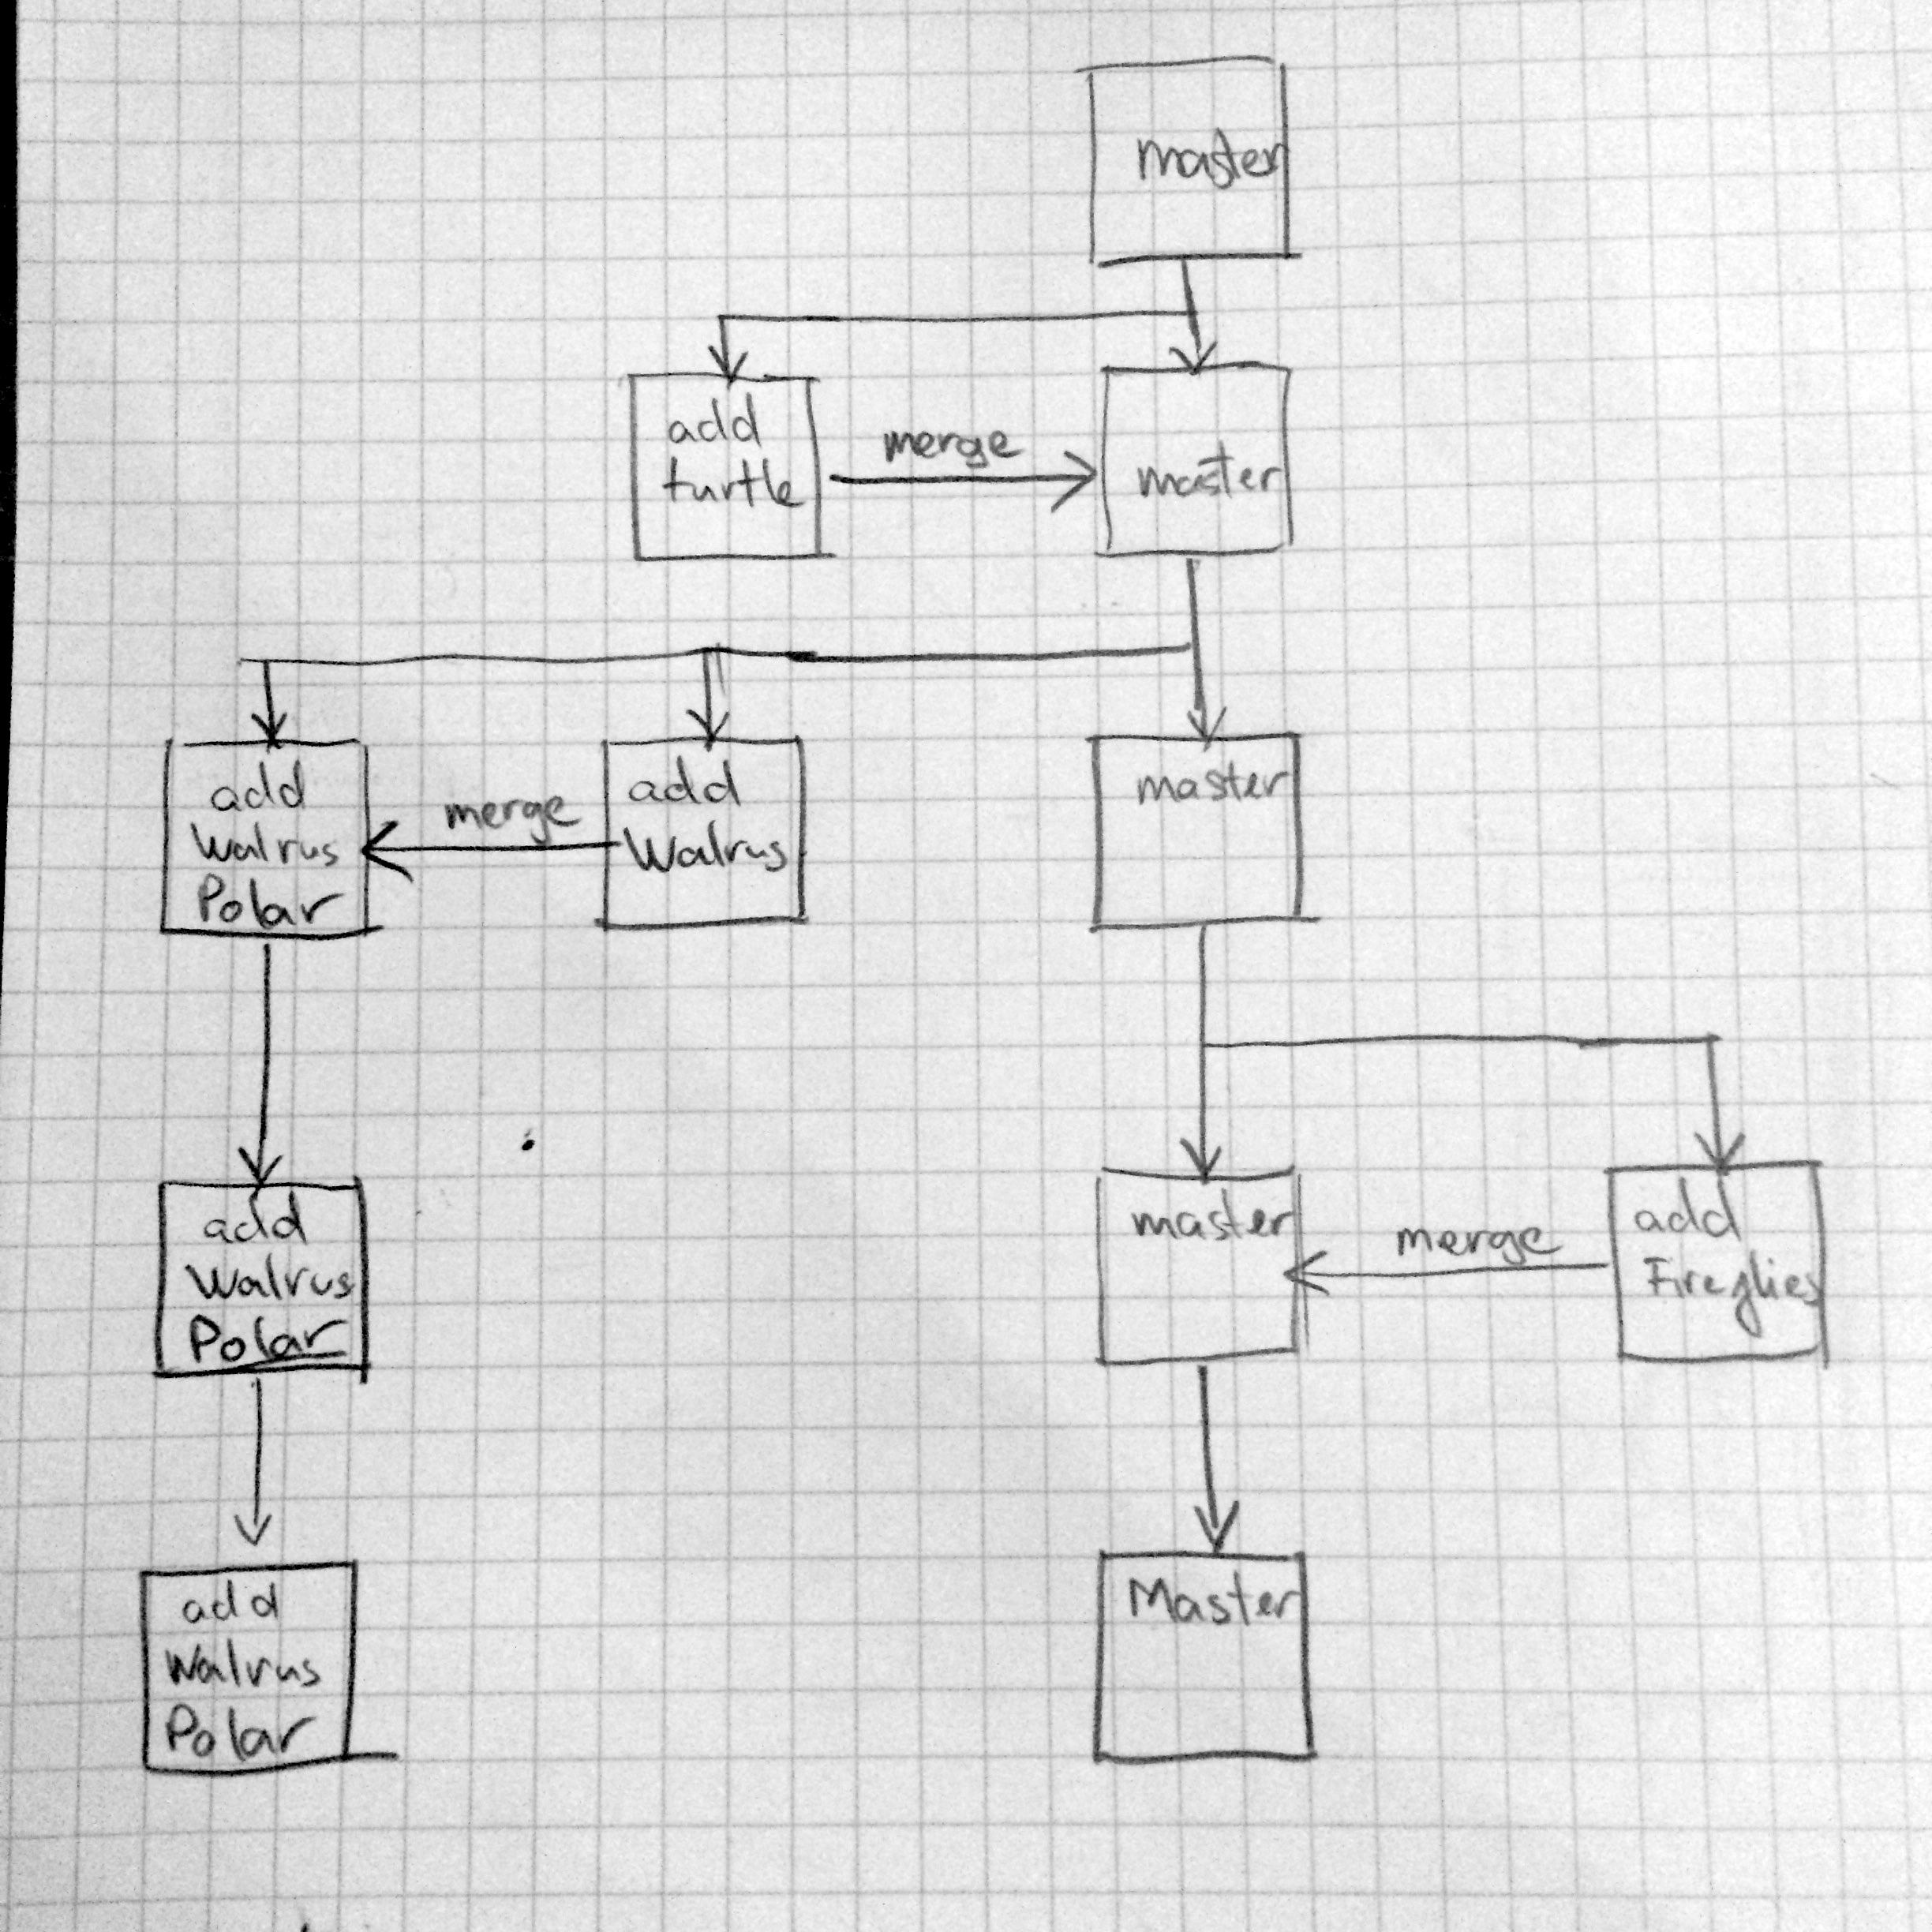 master
add
turtle
merge
master
add
Walrus
Polar
merge
add
Walrus
master
add
Walrus
Polar
master
merge
add
Fireflies
add
Walrus
Polar
Master